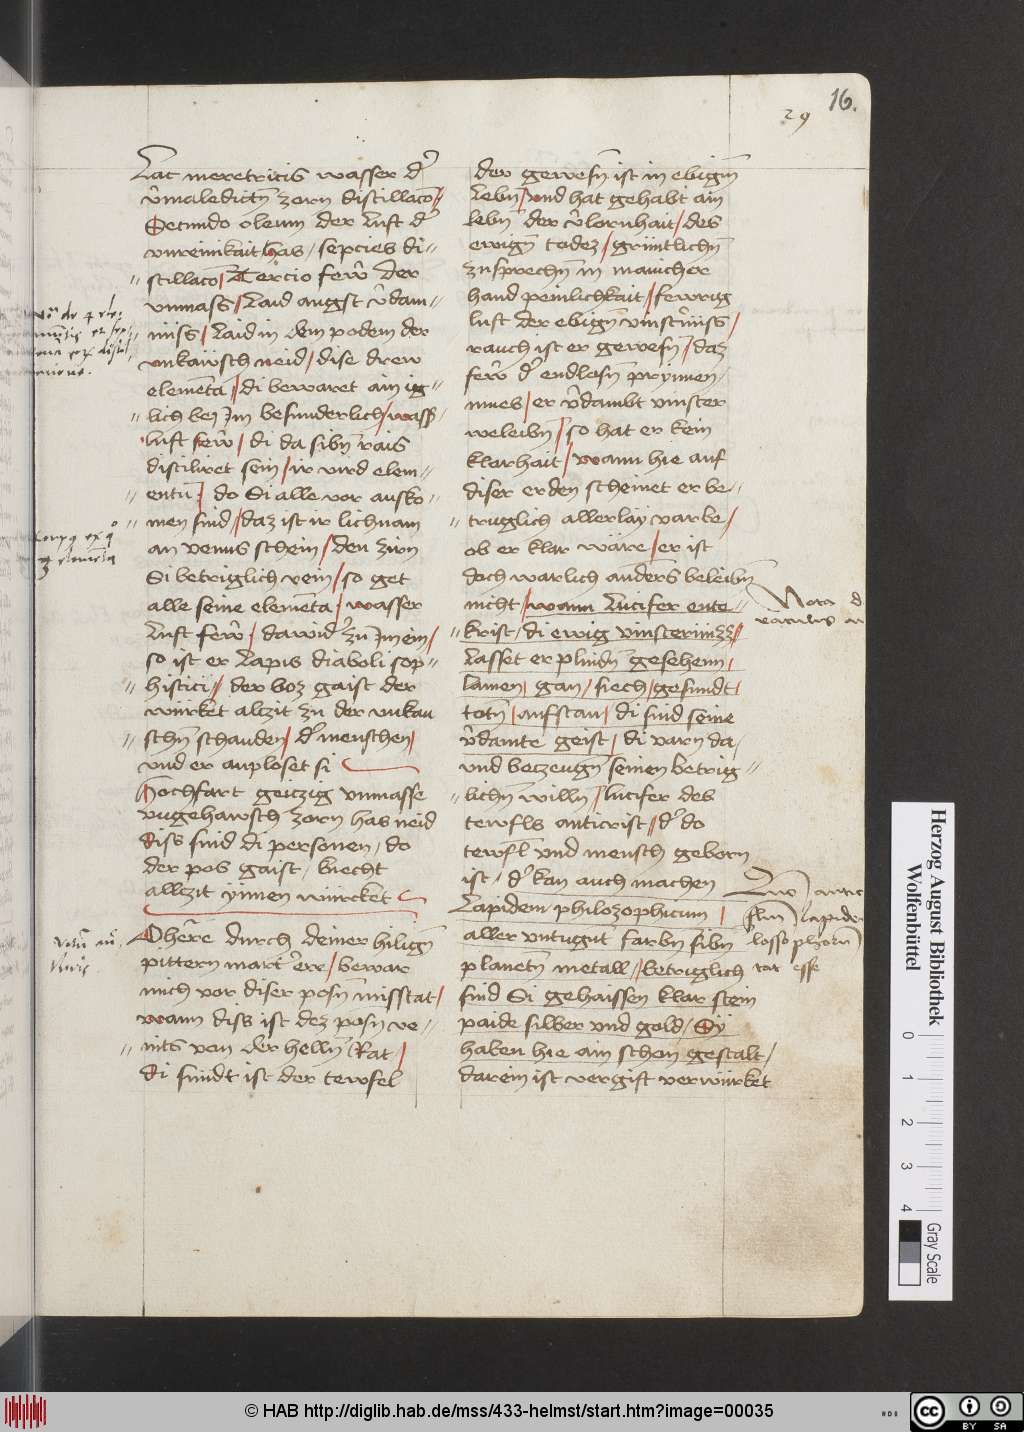 16.
29
Lac meretricis wasser d'
v̂maledictn̄ zorn distillaco
Secundo oleum der luft d'
vnreinikait has / sepcies di=
= stillaco / Tercio few̑ der
vnmass / Laid angst v̂dam=
nüss / Laid in dem podem der
vnkaüsch neid / dise drew
elemēta / di bewaret ain ig=
= lich bei Im besunderlich / wass
luft few̑ / di da sibn̄ rais
distiliret sein / ir wird elem=
= entū / do Si alle vor ausko=
= men sind / daz ist ir lichnam
an venus schein / den zirn
Si betriglich rein / so get
alle seine elemēta / wasser
luft few̑ / dawid' zu Im ein /
so ist er Lapis diaboli sop=
= histici / der boz gaist der
würket alczit zu der vnkau
= schn̄ schanden / d' menschen /
vnd er anploset si
Hochfart geiczig vnmasse
vngehawsch zorn has neid
Diss sind di personen / do
der pos gaist / knecht
allczit ÿnnen würcket
O here durch deiner hilign̄
pittern mart' err / bewar
mich vor diser posn̄ misstat /
wann diss ist dez posn̄ ve=
= nits von der helln̄ Rat /
di sündt ist der tewfel
der gewesn̄ ist in ebign̄
Lebn̄ / vnd hat gehabt ain
lebn̄ der v̂lornhait / des
ewign̄ todez / grüntlichn̄
zusprechn̄ in mancher
hand peinlichkait / fewrig
luft der ebign̄ vinst'nüss /
rauch ist er gewesn̄ / daz
few̑ d' endlosn̄ prynnen /
nnes / er v̂dambt vinster
weleibn̄ / so hat er kein
klarhait / wann hie auf
diser erden scheinet er be=
= truglich allerlay varbe /
ob er klar wäre / er ist
doch warlich anders beleibn̄
nicht / wann Lucifer ente=
= krist / di ewig vinsternüzz /
Lasset er plindn̄ gesehenn /
lamen / gan / siech / gesundt /
totn̄ / aufstan / di sind seine
v̂damte geist / di varn da /
vnd beczeugn̄ seinen betrig=
= lichn̄ willn̄ / lucifer des
tewfls anticrist / d' do
tewfl vnd mensch geborn
ist / d' kan auch machen
Lapidem philozophicum /
aller vntugnt farbn̄ sibn̄
planetn̄ metall / betriglich
sind Si gehaissen klar stein
paide silber vnd gold / Sÿ
haben hie ain schon gestalt /
darein ist vergift verwürket
Nota
lapidem
esse
Herzog August Bibliothek
Wolfenbüttel
0 1 2 3 4
Gray Scale
© HAB http://diglib.hab.de/mss/433-helmst/start.htm?image=00035
CC BY SA